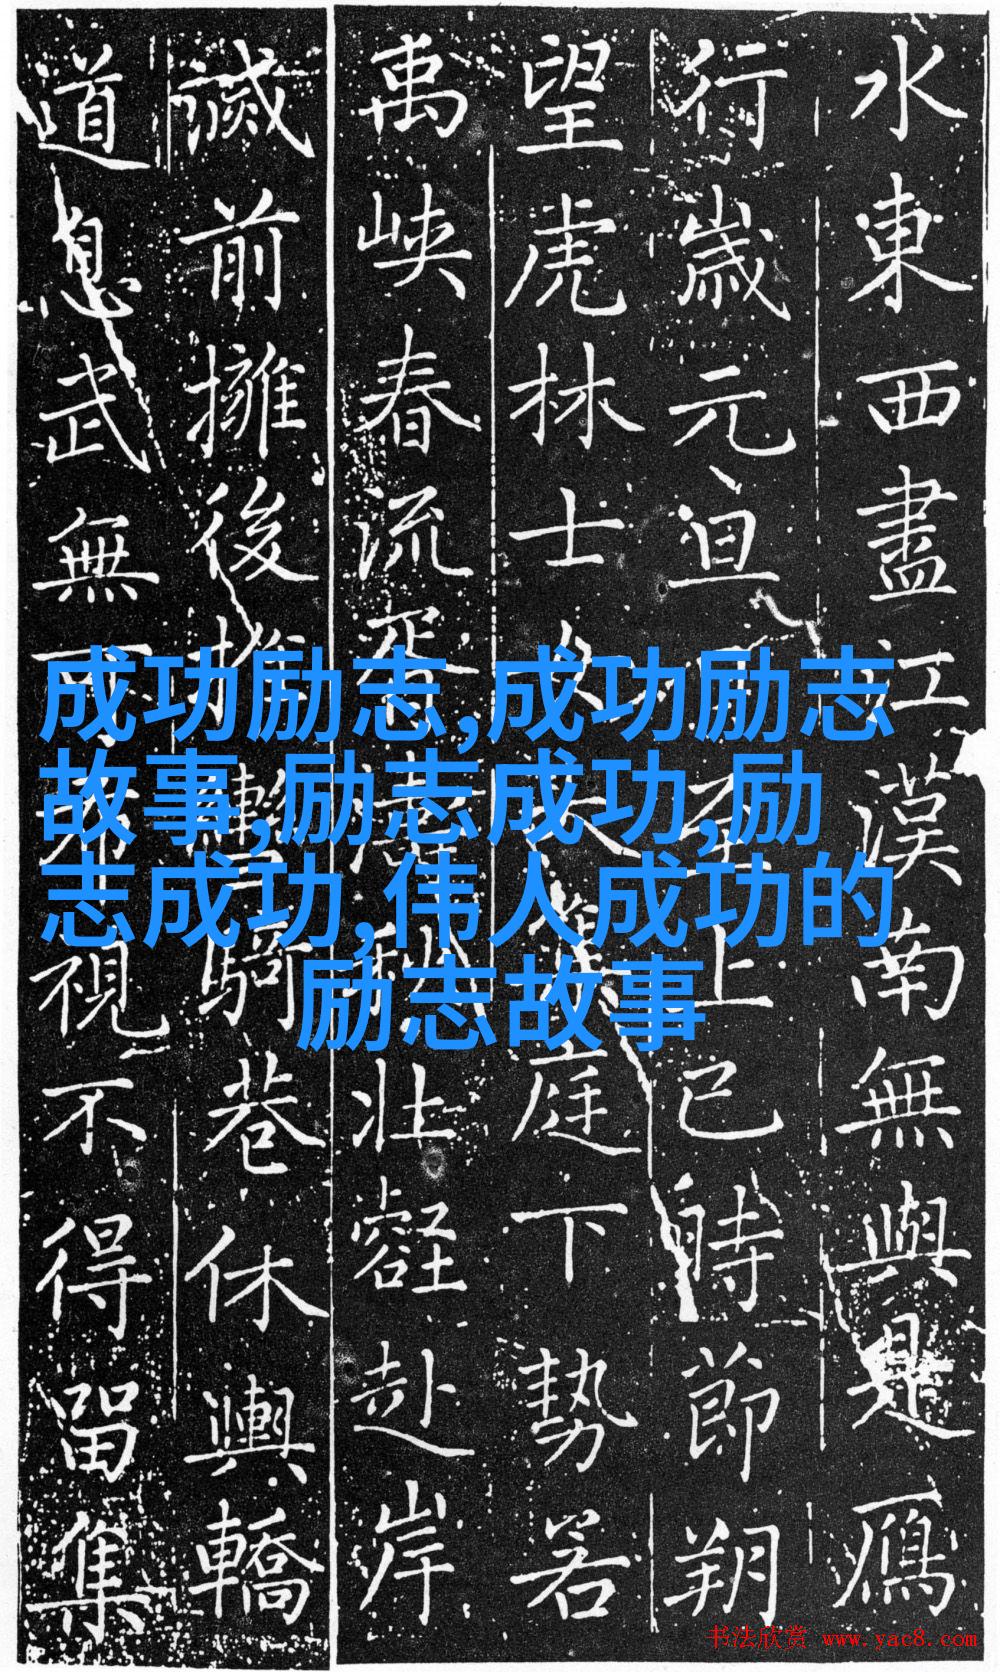 水東西盡江漢南無與是
行歲元旦上巳時節朔
望虎林士庭下勢若
禹峽春流胥壯壑赴岸
前擁後騎巷休輿轎
道息武無視不得留集
成功励志,成功励志
故事,励志成功,励
志成功,伟人成功的
励志故事
书法欣赏 www.yac8.com